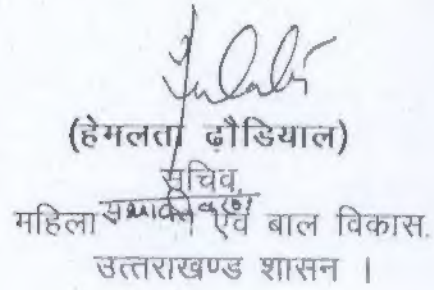 (हेमलता ढ़ौडियाल)
सचिव,
महिला सशक्तिकरण एवं बाल विकास.
उत्तराखण्ड शासन |